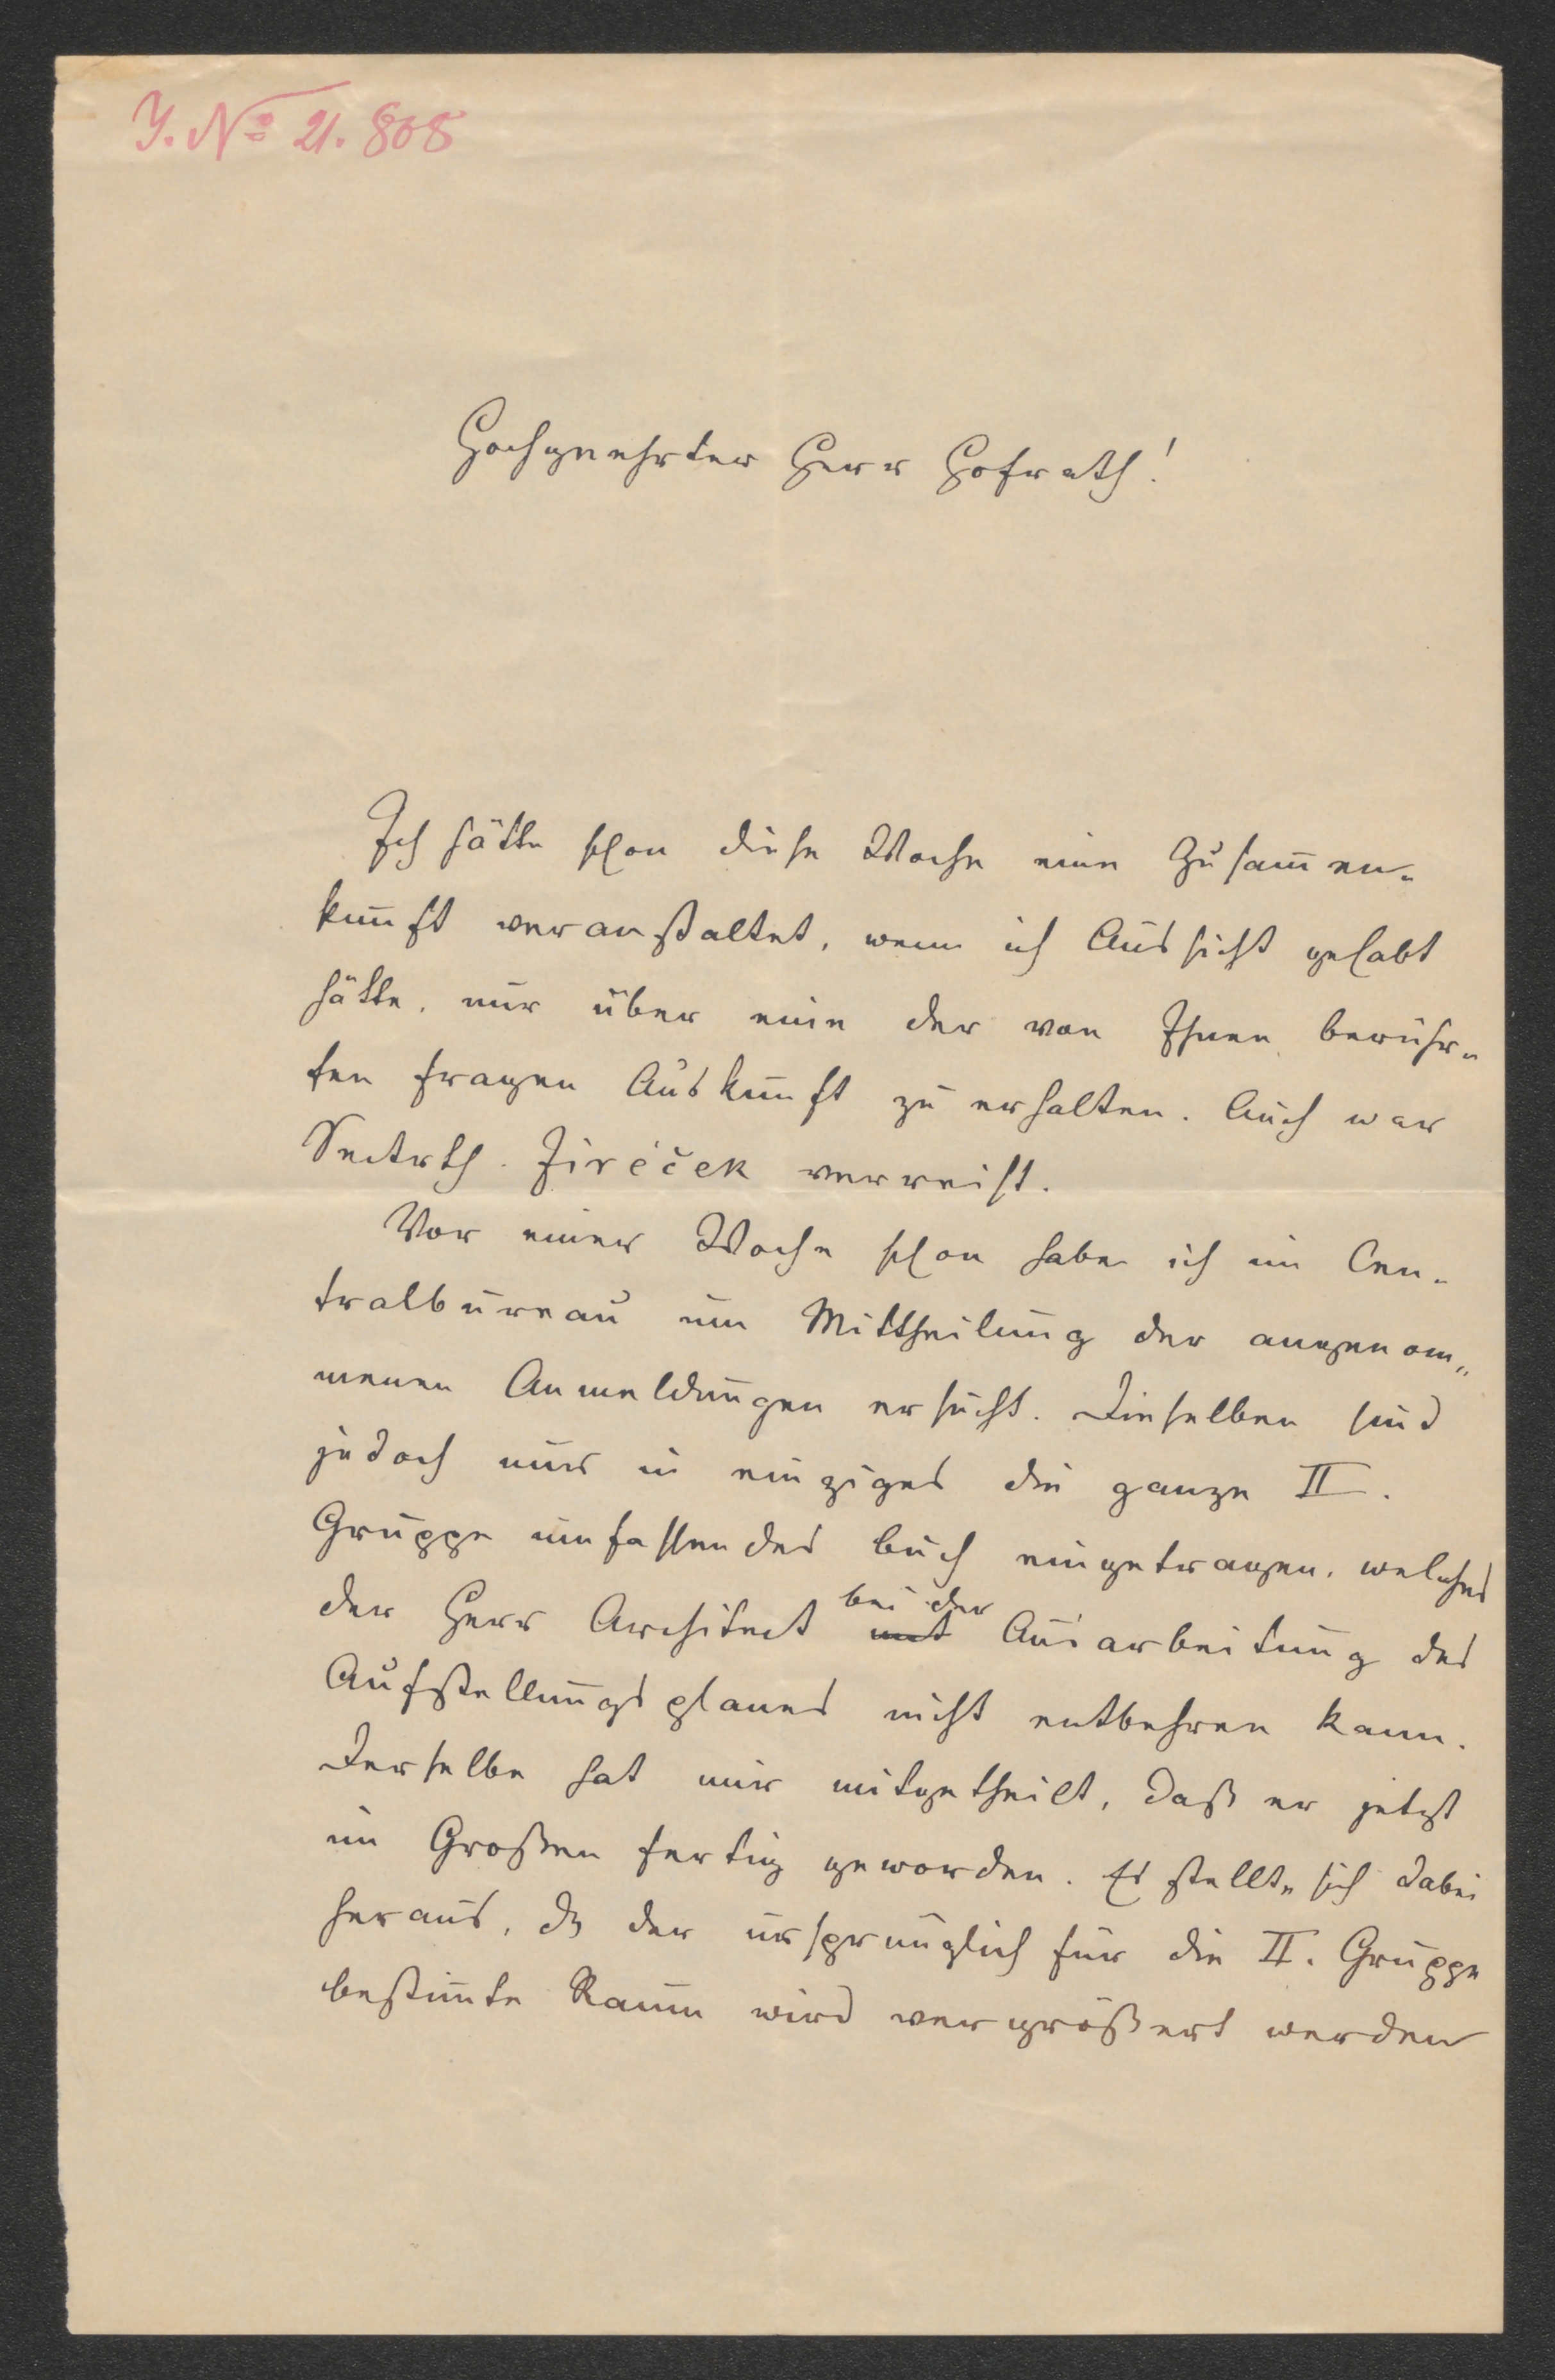 J. No 21.808
Hochgeehrter Herr Hofrath!
Ich hätte schon diese Woche eine Zusam̄en-
kunft veranstaltet, wenn ich Aussicht gehabt
hätte, nur über eine der von Ihnen berühr-
ten Fragen Auskunft zu erhalten. Auch war
Sectrth. Jireček verreist.
Vor einer Woche schon habe ich im Cen-
tralbureau um Mittheilung der angenom-
menen Anmeldungen ersucht. Dieselben sind
jedoch nur in einziges die ganze II.
Gruppe umfassendes Buch eingetragen, welches
der Herr Architect mit bei der Ausarbeitung des
Aufstellungsplanes nicht entbehren kann.
Derselbe hat mir mitgetheilt, daß er jetzt
im Großen fertig geworden. Es stellte sich dabei
heraus, dß der ursprünglich für die II. Gruppe
bestim̄te Raum wird vergrößert werden